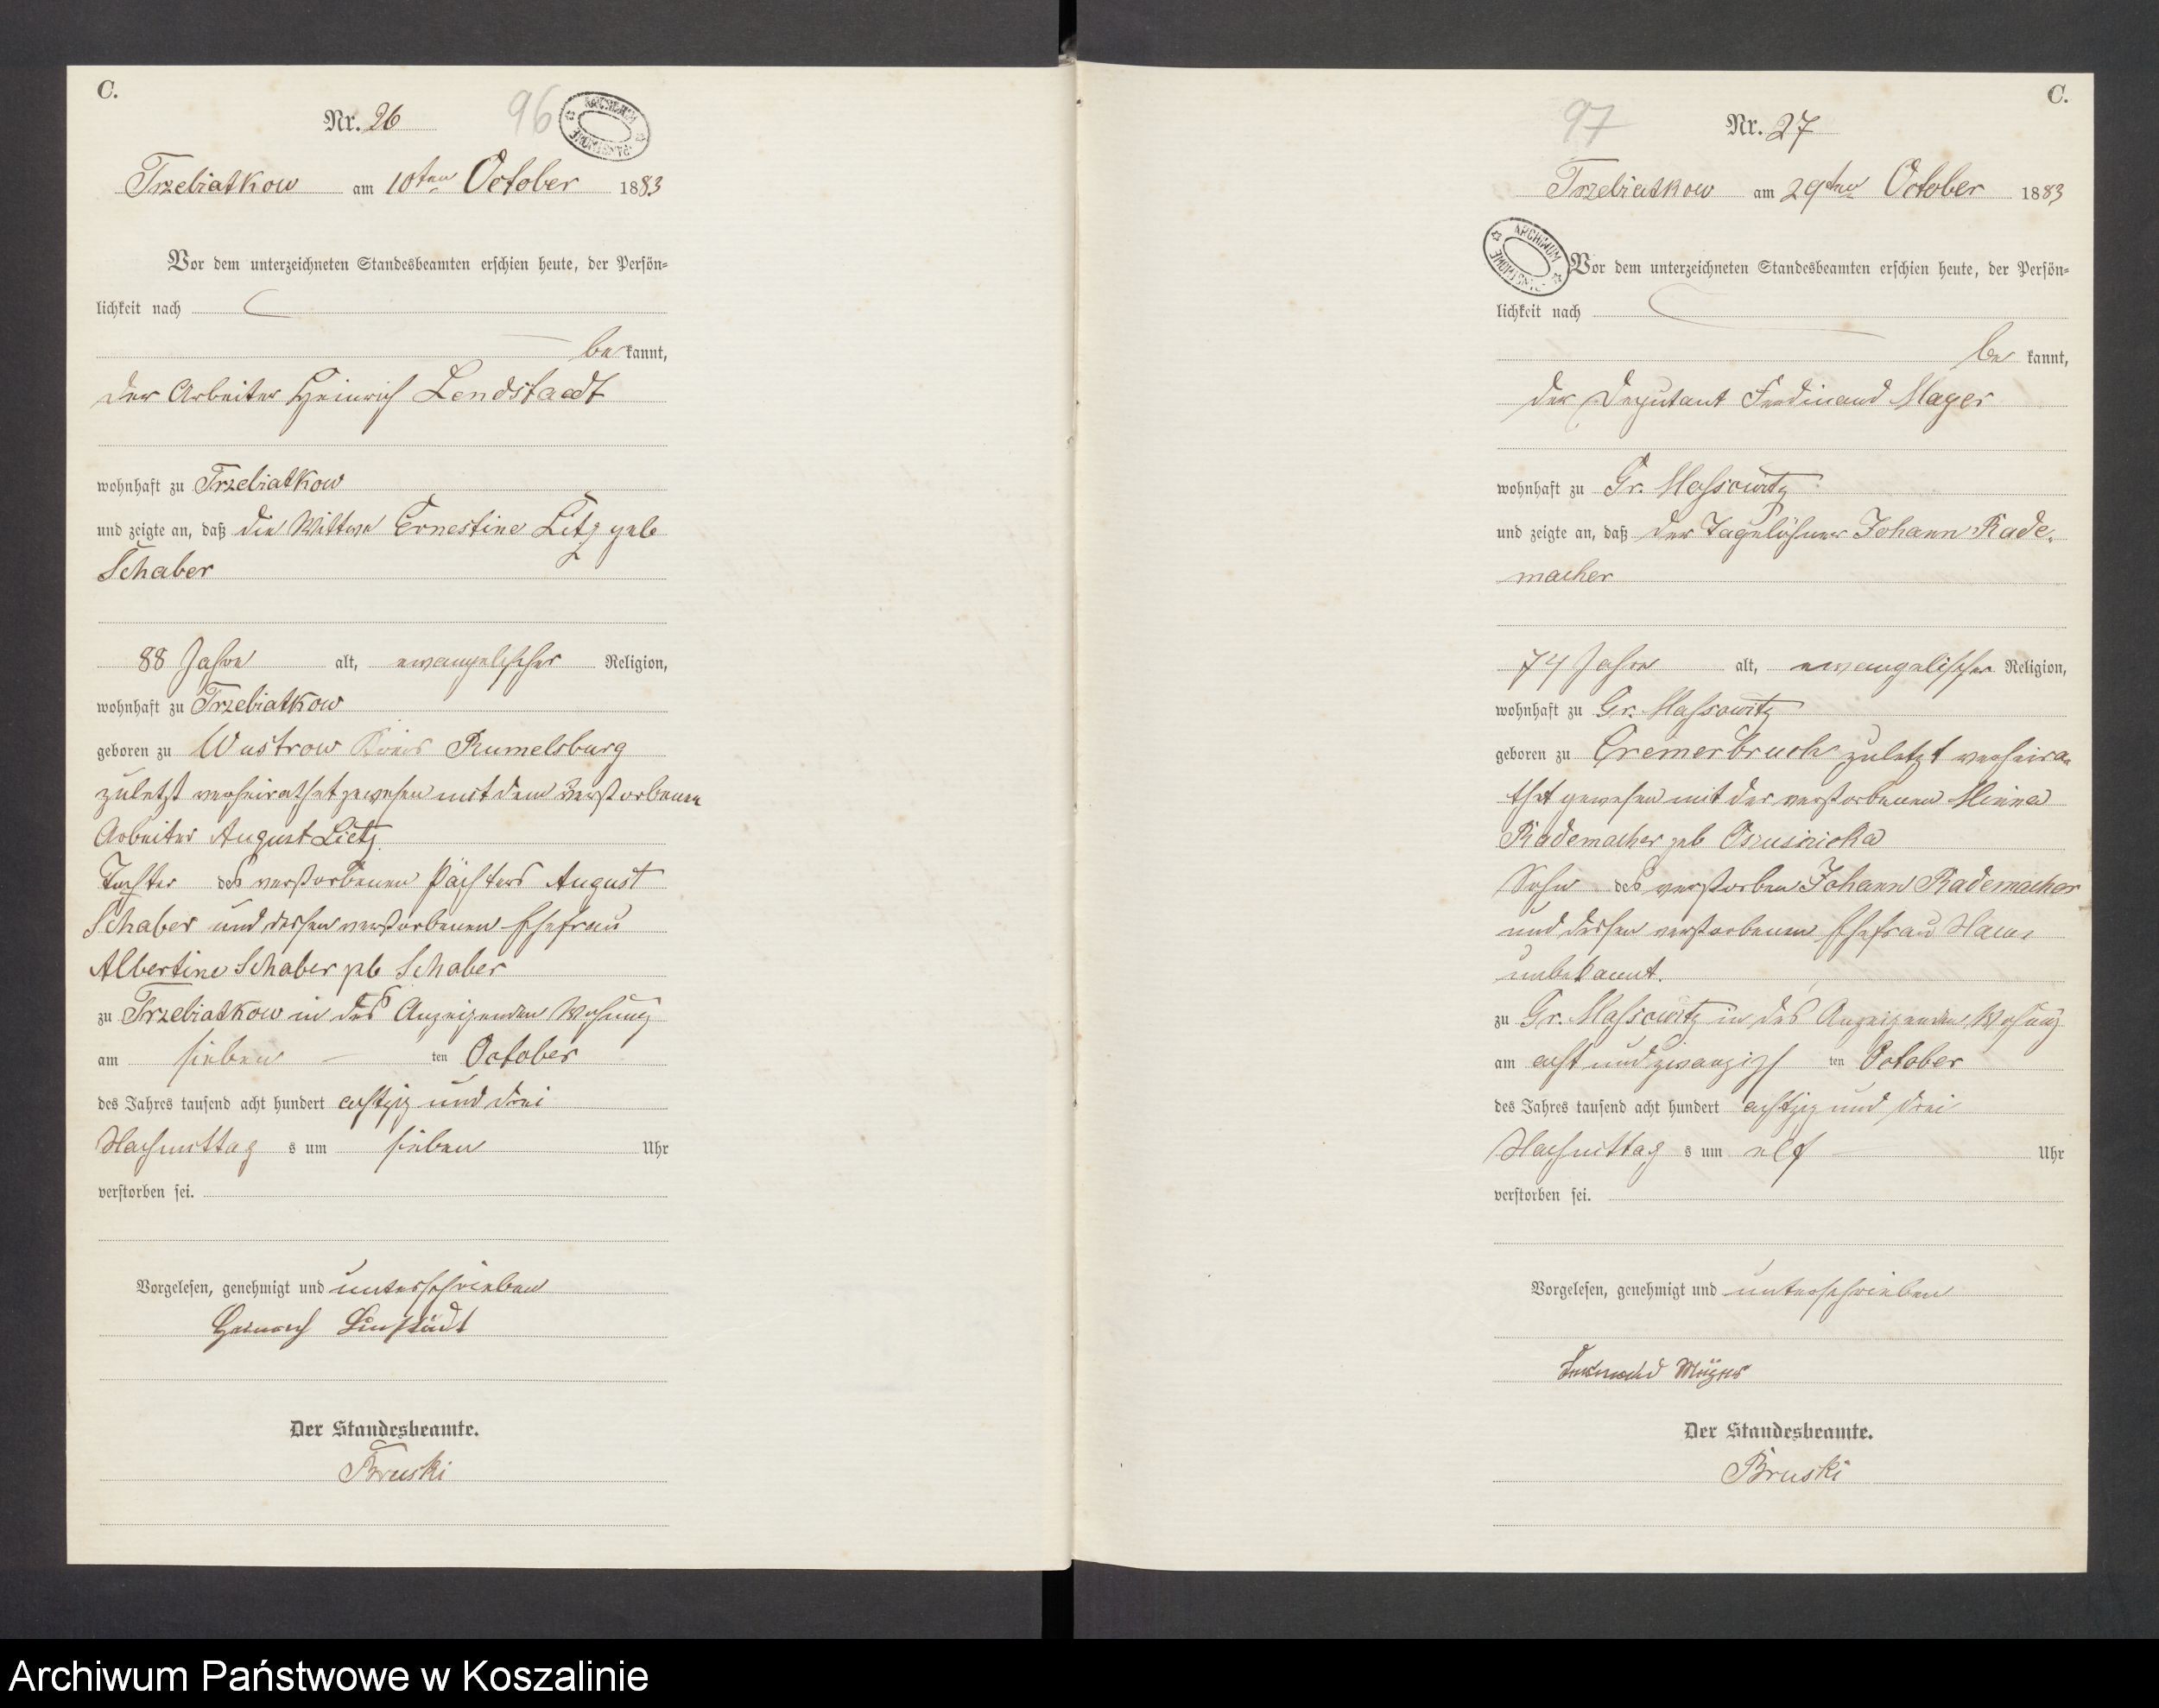 C.
Nr. 26
96
ARCHIWUM PAŃSTWOWE
Trzebiatkow am 10ten October 1883
Vor dem unterzeichneten Standesbeamten erschien heute, der Persön-
lichkeit nach
be kannt,
der Arbeiter Heinrich Lendstaedt
wohnhaft zu Trzebiatkow
und zeigte an, daß die Wittwe Ernestine Litz geb
Schaber
88 Jahre alt, evangelischer Religion,
wohnhaft zu Trzebiatkow
geboren zu Wustrow Kreis Rumelsburg
zuletzt verheirathet gewesen mit dem verstorbenen
Arbeiter August Lietz
Tochter des verstorbenen Pächters August
Schaber und dessen verstorbenen Ehefrau
Albertine Schaber geb Schaber
zu Trzebiatkow in des Anzeigenden Wohung
am sieben ten October
des Jahres tausend acht hundert achtzig und drei
Nachmittag s um sieben Uhr
verstorben sei.
Vorgelesen, genehmigt und unterschrieben
Heinrich Linstädt
Der Standesbeamte.
Bruski
C.
97
Nr. 27
Trzebiatkow am 29ten October 1883
ARCHIWUM PAŃSTWOWE
Vor dem unterzeichneten Standesbeamten erschien heute, der Persön-
lichkeit nach
be kannt,
der Deputant Ferdinand Mayer
wohnhaft zu Gr. Massowitz
und zeigte an, daß der Tagelöhner Johann Rade-
macher
74 Jahre alt, evangelischer Religion,
wohnhaft zu Gr. Massowitz
geboren zu Cremerbruch zuletzt verheira-
thet gewesen mit der verstorbenen Minna
Rademacher geb
Sohn des verstorben Johann Rademacher
und dessen verstorbenen Ehefrau Name
unbekannt.
zu Gr. Massowitz in des Anzeigenden Wohung
am acht und zwanzigs ten October
des Jahres tausend acht hundert achtzig und drei
Nachmittag s um elf Uhr
verstorben sei.
Vorgelesen, genehmigt und unterschrieben
Ferdinand Mayer
Der Standesbeamte.
Bruski
Archiwum Państwowe w Koszalinie